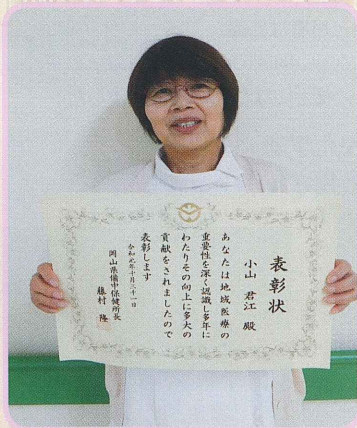 表彰状
小山 君江 殿
あなたは地域医療の
重要性を深く認識し多年に
わたりその向上に多大の
貢献をされましたので
表彰します
令和元年十月三十一日
岡山県備中保健所長
藤村 隆